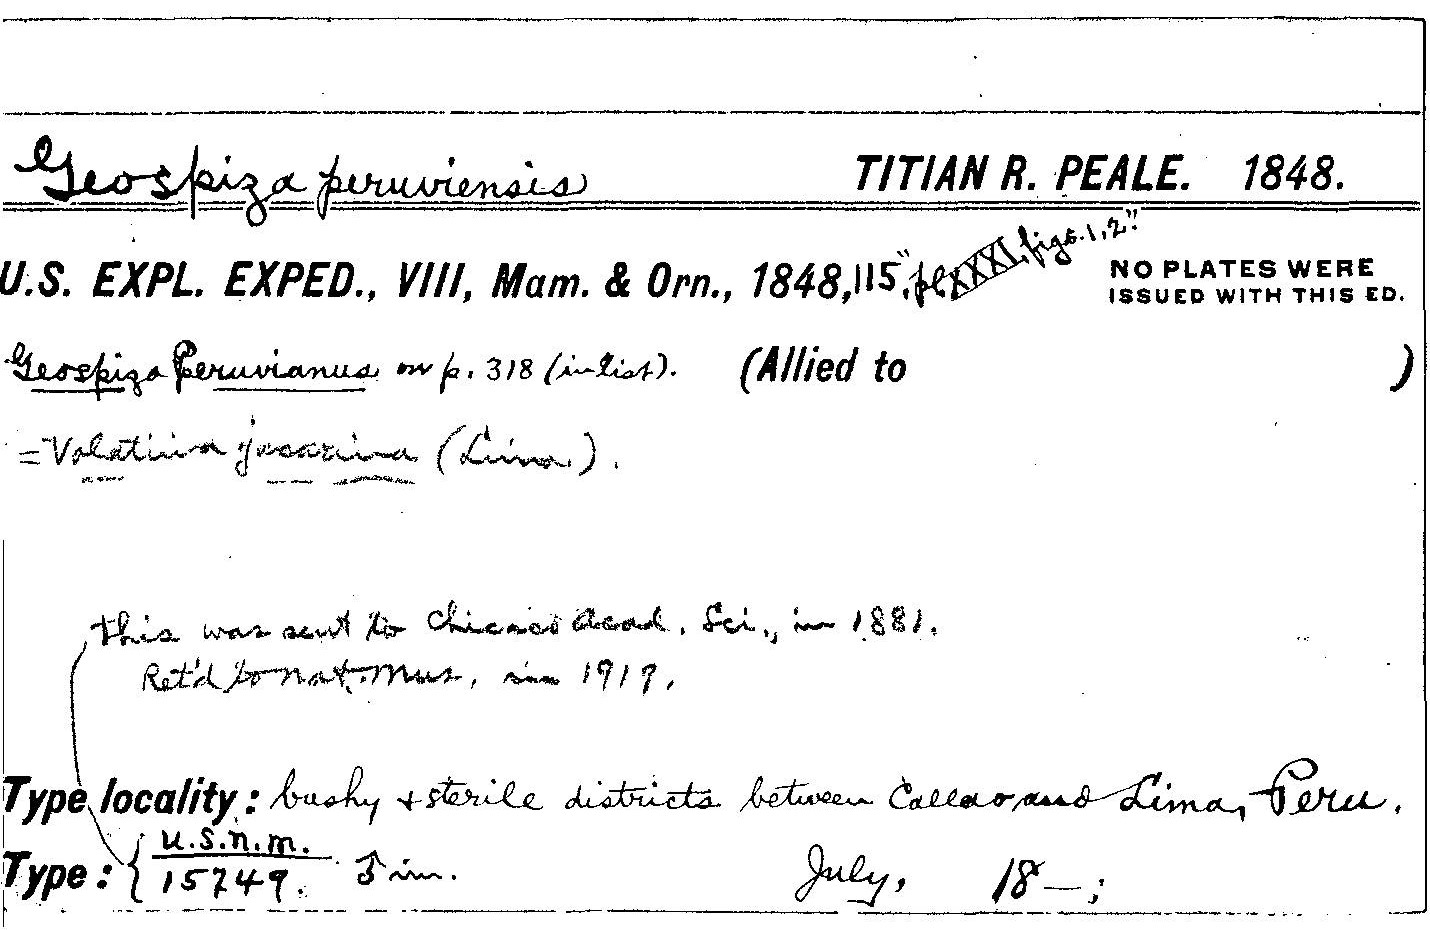 Geospiza peruviensis TITIAN R. PEALE. 1848.
U.S. EXPL. EXPED., VIII, Mam. & Orn., 1848, 115, "pl. XXXI, figs. 1, 2" NO PLATES WERE
ISSUED WITH THIS ED.
Geospiza Peruvianus on p. 318 (in list). (Allied to )
= Volatinia jacarina (Lima).
This was sent to Chicago Acad. Sci., in 1881.
Ret'd to Nat. Mus. in 1919.
Type locality: bushy & sterile districts between Callao and Lima, Peru.
Type: { U.S.N.M.
15749. im. July, 18—;